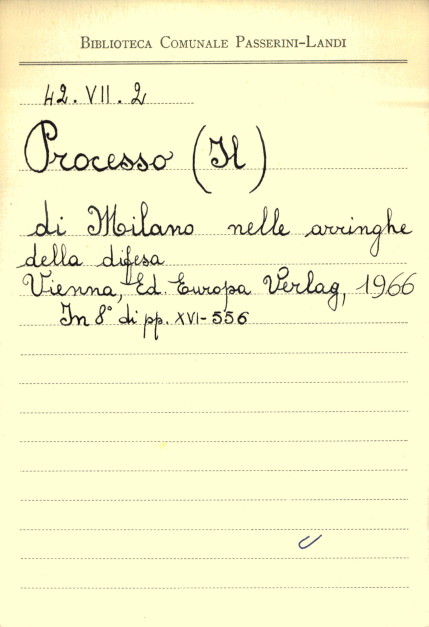 BIBLIOTECA COMUNALE PASSERINI-LANDI
42. VII. 2
Processo (Il)
di Milano nelle arringhe
della difesa
Vienna, Ed. Europa Verlag, 1966
In 8° di pp. XVI-556